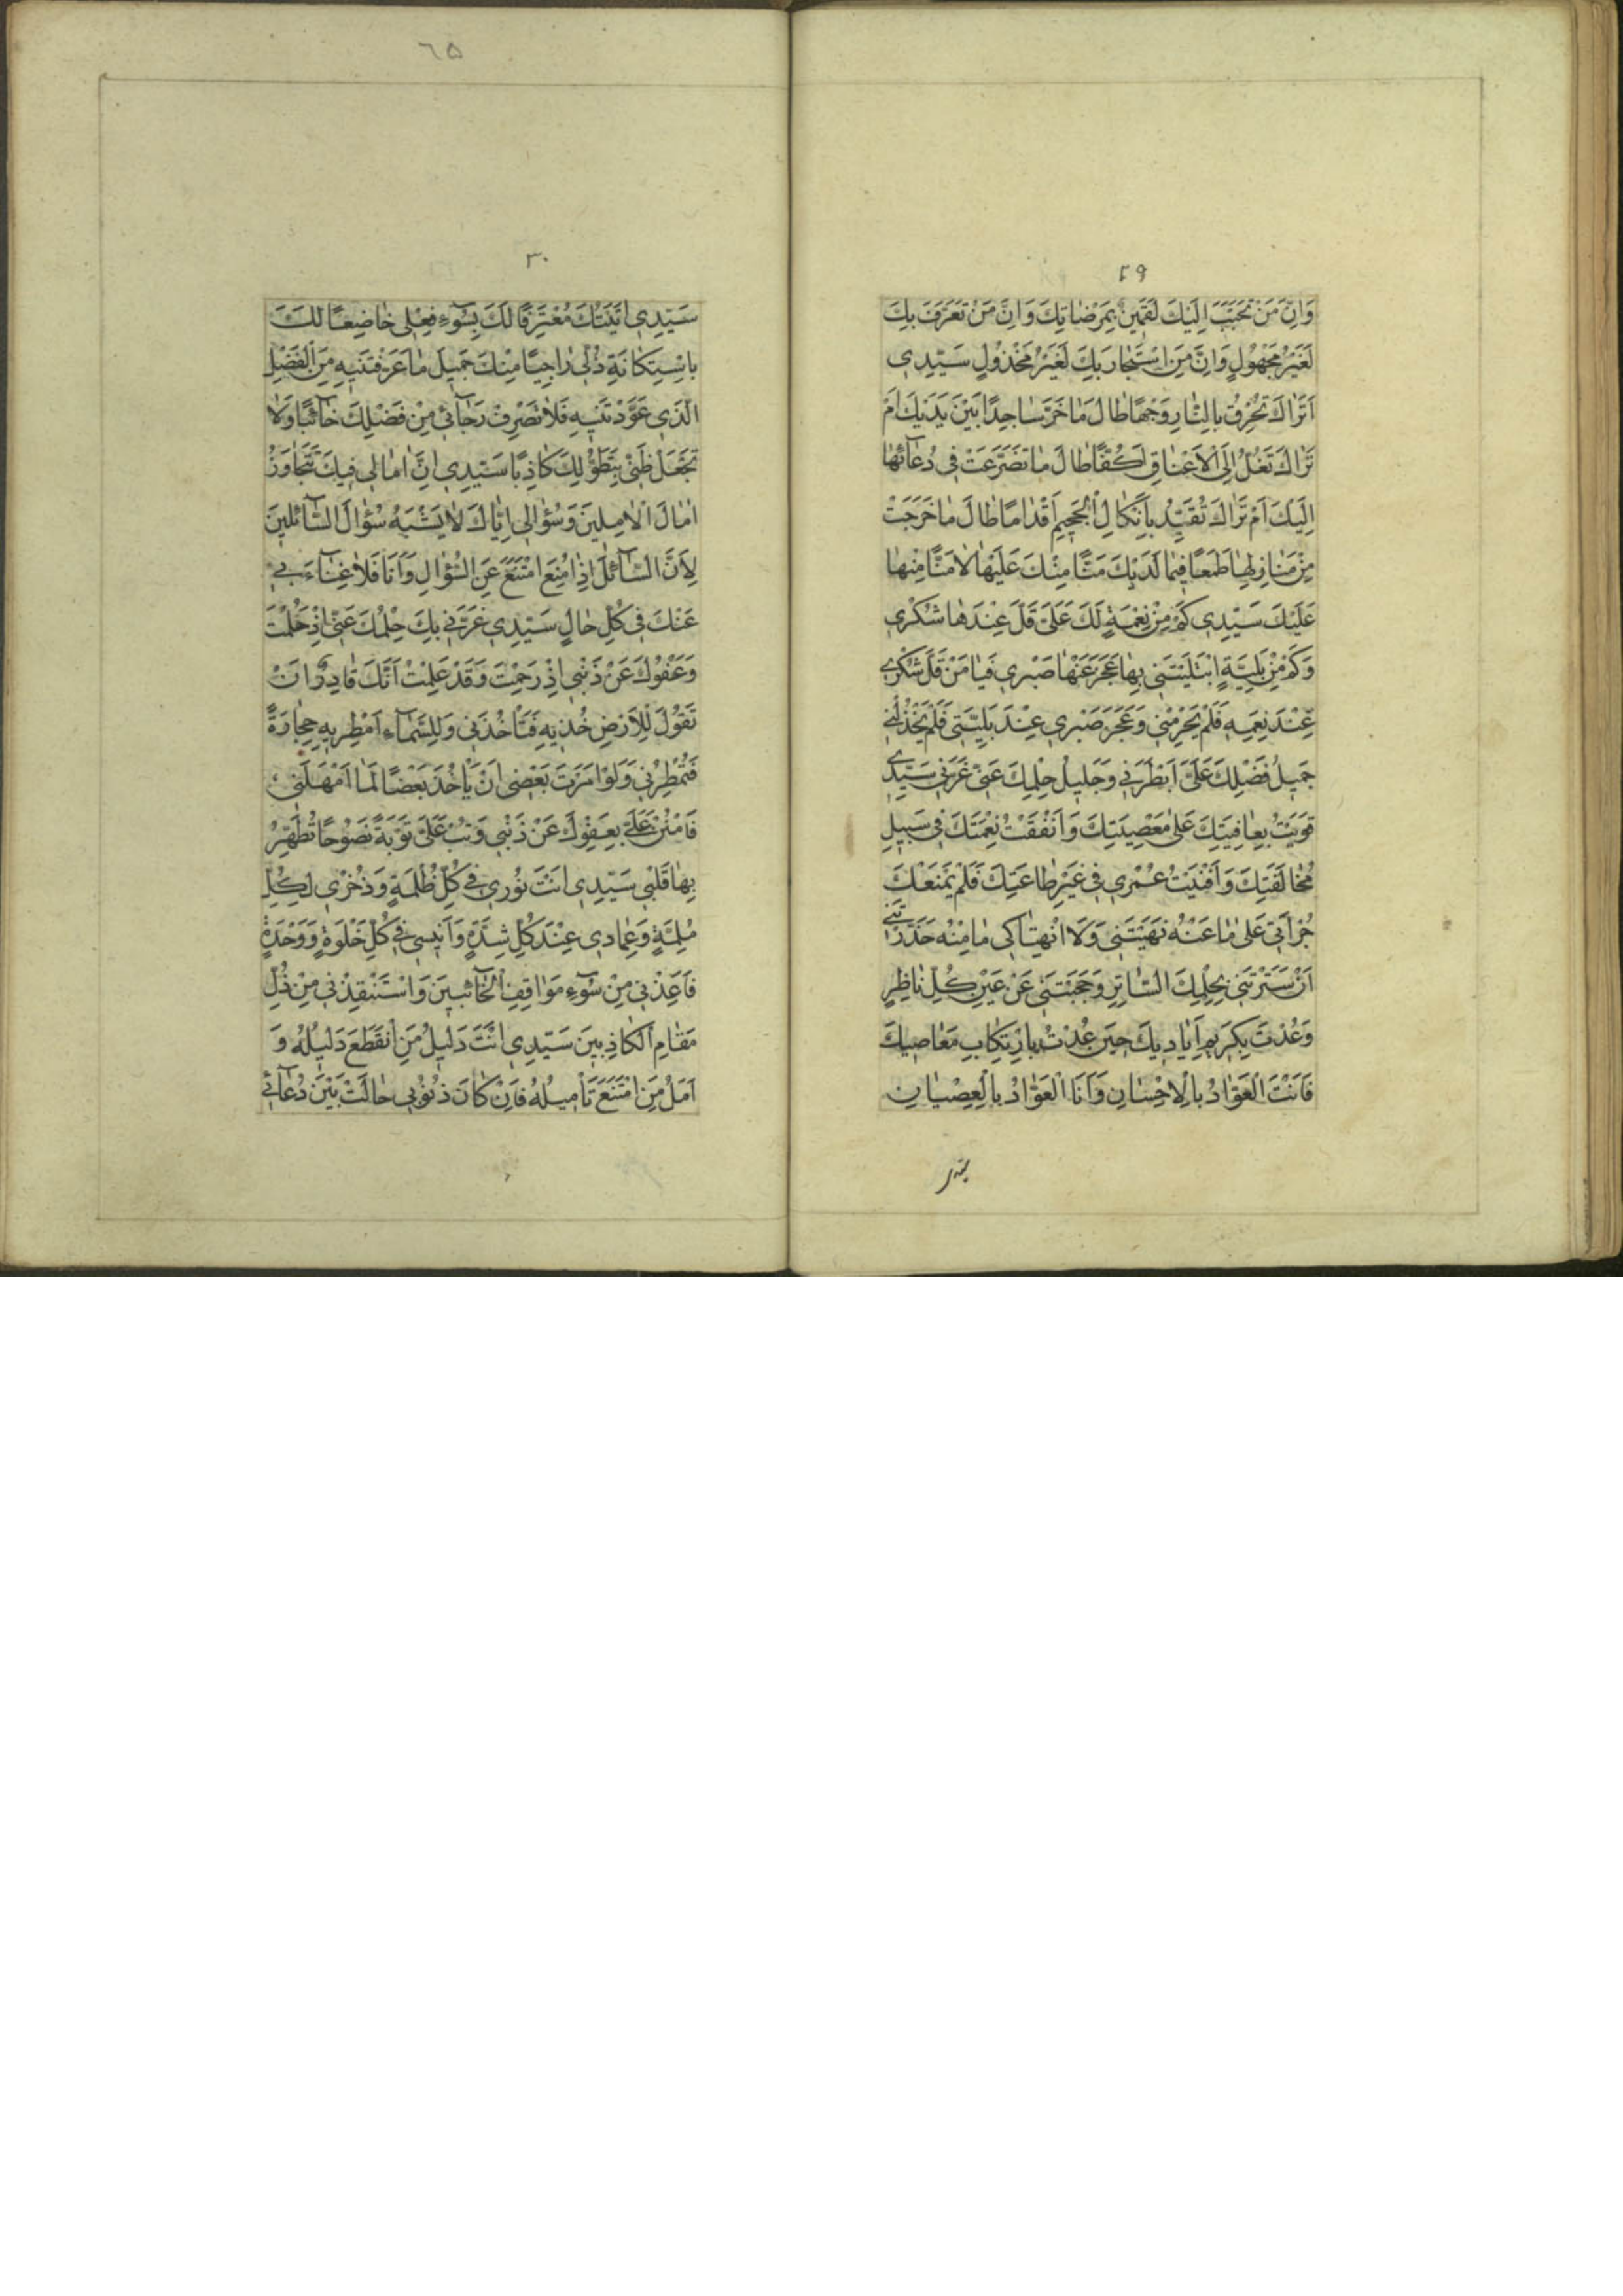 ٢٩
وَاِنَّ مَنْ تَحَبَّبَ اِلَيْكَ لَقَمِينٌ بِمَرْضَاتِكَ وَاِنَّ مَنْ تَعَرَّفَ بِكَ
لَغَيْرُ مَجْهُولٍ وَاِنَّ مَنِ اسْتَجَارَ بِكَ لَغَيْرُ مَخْذُولٍ سَيِّدِي
اَتَرَاكَ تُحْرِقُ بِالنَّارِ وَجْهًا طَالَ مَا خَرَّ سَاجِدًا بَيْنَ يَدَيْكَ اَمْ
تَرَاكَ تَغُلُّ اِلَى الْاَعْنَاقِ اَكُفًّا طَالَ مَا تَضَرَّعَتْ فِي دُعَآئِهَا
اِلَيْكَ اَمْ تَرَاكَ تُقَيِّدُ بِاَنْكَالِ الْجَحِيمِ اَقْدَامًا طَالَ مَا خَرَجَتْ
مِنْ مَنَازِلِهَا طَمَعًا فِيمَا لَدَيْكَ مَنًّا مِنْكَ عَلَيْهَا لَا مَنًّا مِنْهَا
عَلَيْكَ سَيِّدِي كَمْ مِنْ نِعْمَةٍ لَكَ عَلَيَّ قَلَّ عِنْدَهَا شُكْرِي
وَكَمْ مِنْ بَلِيَّةٍ ابْتَلَيْتَنِي بِهَا عَجَزَ عَنْهَا صَبْرِي فَيَا مَنْ قَلَّ شُكْرِي
عِنْدَ نِعَمِهِ فَلَمْ يَحْرِمْنِي وَعَجَزَ صَبْرِي عِنْدَ بَلِيَّتِي فَلَمْ يَخْذُلْنِي
جَمِيلُ فَضْلِكَ عَلَيَّ اَبْطَرَنِي وَجَلِيلُ حِلْمِكَ عَنِّي غَرَّنِي سَيِّدِي
قَوِيتُ بِعَافِيَتِكَ عَلَى مَعْصِيَتِكَ وَاَنْفَقْتُ نِعْمَتَكَ فِي سَبِيلِ
مُخَالَفَتِكَ وَاَفْنَيْتُ عُمْرِي فِي غَيْرِ طَاعَتِكَ فَلَمْ يَمْنَعْكَ
جُرْاَتِي عَلَى مَا عَنْهُ نَهَيْتَنِي وَلَا انْهِتَاكِي مَا مِنْهُ حَذَّرْتَنِي
اَنْ سَتَرْتَنِي بِحِلْمِكَ السَّاتِرِ وَحَجَبْتَنِي عَنْ عَيْنِ كُلِّ نَاظِرٍ
وَعُدْتَ بِكَرِيمِ اَيَادِيكَ حِينَ عُدْتُ بِارْتِكَابِ مَعَاصِيكَ
فَاَنْتَ الْعَوَّادُ بِالْاِحْسَانِ وَاَنَا الْعَوَّادُ بِالْعِصْيَانِ
٦٥
٣٠
سَيِّدِي اَتَيْتُكَ مُعْتَرِفًا لَكَ بِسُوٓءِ فِعْلِي خَاضِعًا لَكَ
بِاسْتِكَانَةِ ذُلِّي رَاجِيًا مِنْكَ جَمِيلَ مَا عَرَفْتَنِيهِ مِنَ الْفَضْلِ
الَّذِي عَوَّدْتَنِيهِ فَلَا تَصْرِفْ رَجَآئِي مِنْ فَضْلِكَ خَآئِبًا وَلَا
تَجْعَلْ ظَنِّي بِتَطَوُّلِكَ كَاذِبًا سَيِّدِي اِنَّ اٰمَالِي فِيكَ تَتَجَاوَزُ
اٰمَالَ الْاٰمِلِينَ وَسُؤَالِي اِيَّاكَ لَا يَشْبَهُ سُؤَالَ السَّآئِلِينَ
لِاَنَّ السَّآئِلَ اِذَا مُنِعَ امْتَنَعَ عَنِ السُّؤَالِ وَاَنَا فَلَا غِنَآءَ بِي
عَنْكَ فِي كُلِّ حَالٍ سَيِّدِي غَرَّنِي بِكَ حِلْمُكَ عَنِّي اِذْ حَلُمْتَ
وَعَفْوُكَ عَنْ ذَنْبِي اِذْ رَحِمْتَ وَقَدْ عَلِمْتُ اَنَّكَ قَادِرٌ اَنْ
تَقُولَ لِلْاَرْضِ خُذِيهِ فَتَأْخُذَنِي وَلِلسَّمَآءِ اَمْطِرِيهِ حِجَارَةً
فَتُمْطِرَنِي وَلَوْ اَمَرْتَ بَعْضِي اَنْ يَأْخُذَ بَعْضًا لَمَا اَمْهَلَنِي
فَامْنُنْ عَلَيَّ بِعَفْوِكَ عَنْ ذَنْبِي وَتُبْ عَلَيَّ تَوْبَةً نَصُوحًا تُطَهِّرُ
بِهَا قَلْبِي سَيِّدِي اَنْتَ نُورِي فِي كُلِّ ظُلْمَةٍ وَذُخْرِي لِكُلِّ
مُلِمَّةٍ وَعِمَادِي عِنْدَ كُلِّ شِدَّةٍ وَاَنِيسِي فِي كُلِّ خَلْوَةٍ وَوَحْدَةٍ
فَاَعِذْنِي مِنْ سُوٓءِ مَوَاقِفِ الْخَآئِبِينَ وَاسْتَنْقِذْنِي مِنْ ذُلِّ
مَقَامِ الْكَاذِبِينَ سَيِّدِي اَنْتَ دَلِيلُ مَنِ انْقَطَعَ دَلِيلُهُ وَ
اَمَلُ مَنِ امْتَنَعَ تَأْمِيلُهُ فَاِنْ كَانَ ذُنُوبِي حَالَتْ بَيْنَ دُعَآئِي